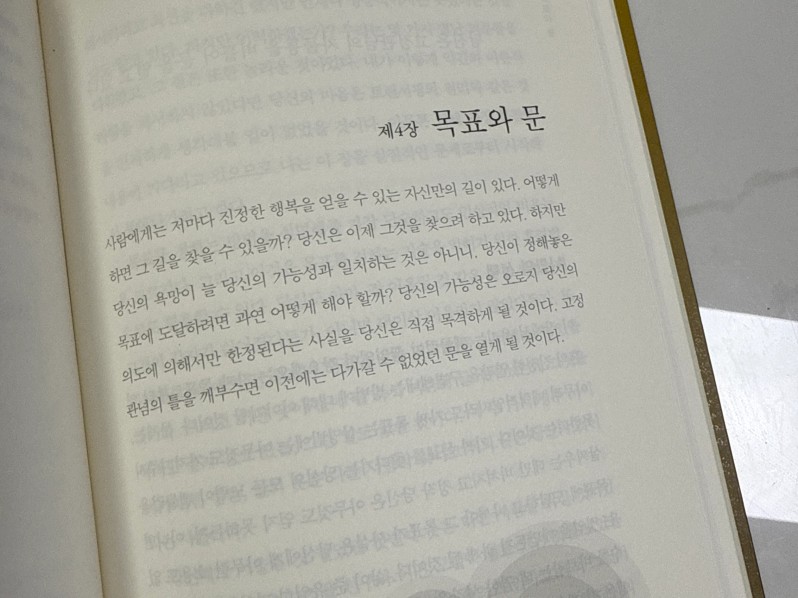 제4장 목표와 문
사람에게는 저마다 진정한 행복을 얻을 수 있는 자신만의 길이 있다. 어떻게
하면 그 길을 찾을 수 있을까? 당신은 이제 그것을 찾으려 하고 있다. 하지만
당신의 욕망이 늘 당신의 가능성과 일치하는 것은 아니니, 당신이 정해놓은
목표에 도달하려면 과연 어떻게 해야 할까? 당신의 가능성은 오로지 당신의
의도에 의해서만 한정된다는 사실을 당신은 직접 목격하게 될 것이다. 고정
관념의 틀을 깨부수면 이전에는 다가갈 수 없었던 문을 열게 될 것이다.